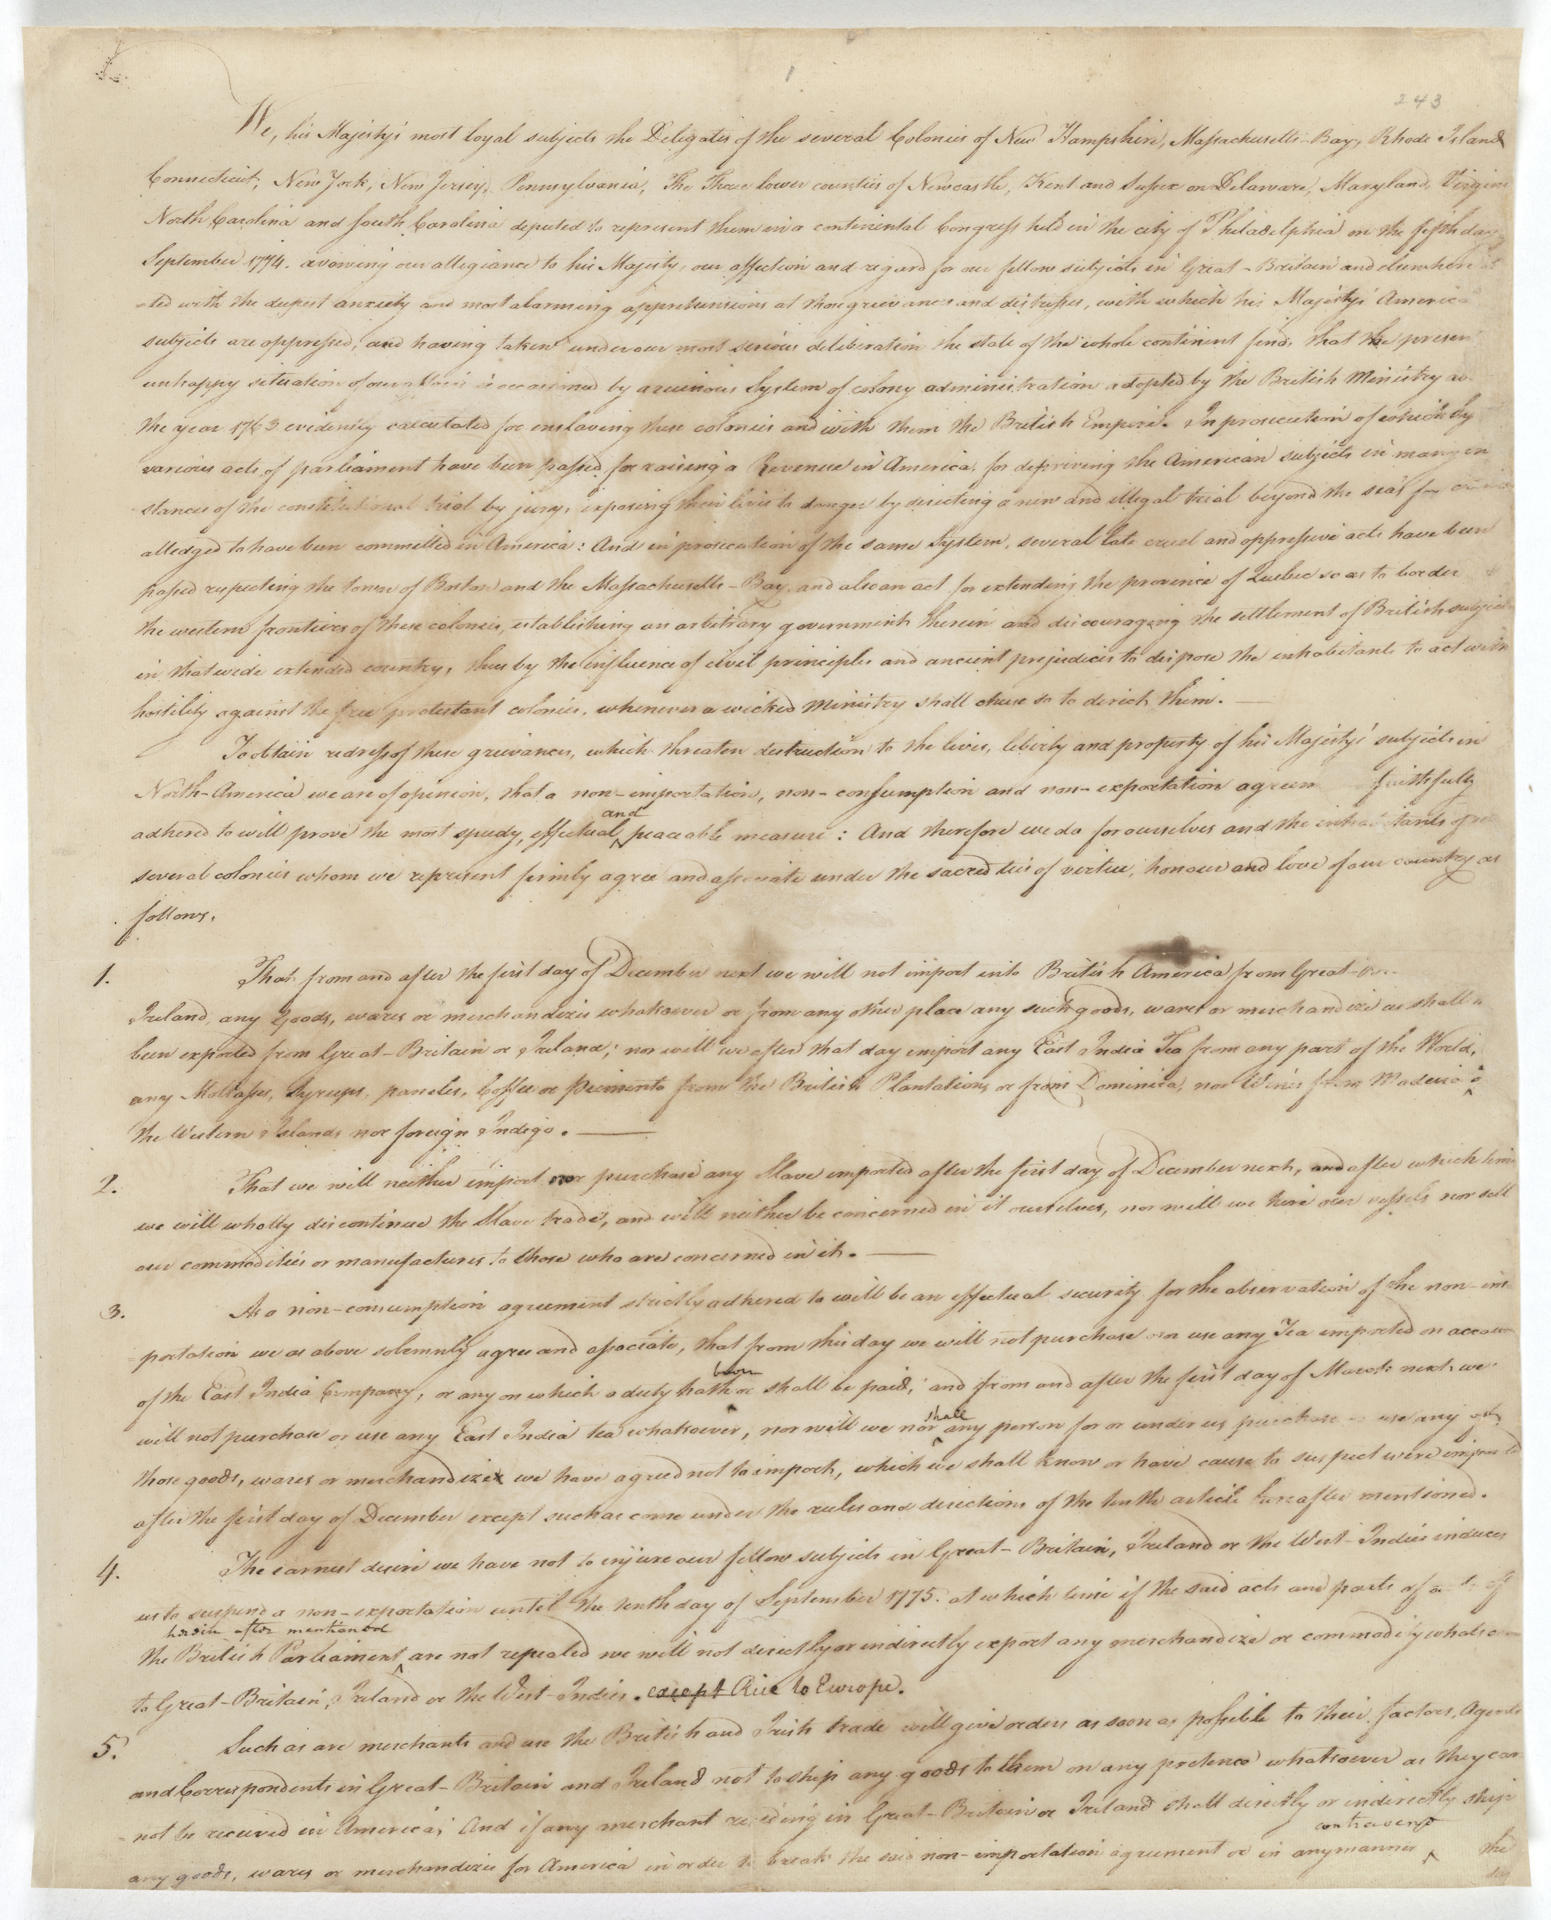 1
243
We, his Majesty's most loyal subjects the Delegates of the several Colonies of New Hampshire, Massachusetts-Bay, Rhode Island
Connecticut, New York, New Jersey, Pennsylvania, The Three lower counties of Newcastle, Kent and Sussex on Delaware, Maryland, Virgini
North Carolina and South Carolina deputed to represent them in a continental Congress held in the city of Philadelphia on the fifth day
September 1774. avowing our allegiance to his Majesty, our affection and regard for our fellow subjects in Great-Britain and elsewhere
-ted with the deepest anxiety and most alarming apprehensions at those grievances and distresses, with which his Majesty's America
subjects are oppressed, and having taken under our most serious deliberation the state of the whole continent find, that the present
unhappy situation of our is occasioned by a ruinous System of colony administration adopted by the British Ministry
the year 1763 evidently calculated for enslaving these colonies and with them the British Empire. In prosecution of which Sy
various acts of parliament have been passed for raising a Revenue in America, for depriving the American subjects in many in
-stances of the constitutional trial by jury, exposing their lives to danger by directing a new and illegal trial beyond the seas for
alledged to have been committed in America: And in prosecution of the same System, several late cruel and oppressive acts have been
passed respecting the town of Boston and the Massachusetts-Bay, and also an act for extending the province of Quebec so as to border
the western frontiers of these colonies, establishing an arbitrary government therein and discouraging the settlement of British subjects
in that wide extended country; thus by the influence of civil principles and ancient prejudices to dispose the inhabitants to act with
hostility against the free protestant colonies, whenever a wicked Ministry shall chuse so to direct them.
To obtain redress of these grievances, which threaten destruction to the lives, liberty and property of his Majesty's subjects in
North-America we are of opinion, that a non-importation, non-consumption and non-exportation agreem faithfully
and
adhered to will prove the most speedy, effectual peaceable measure: And therefore we do for ourselves and the inhabitants of
several colonies whom we represent firmly agree and associate under the sacred ties of virtue, honour and love of our country as
follows.
1. That from and after the first day of December next we will not import into British America from Great-
Ireland any Goods, wares or merchandizes whatsoever or from any other place any such goods, wares or merchandize as shall
been exported from Great-Britain or Ireland; nor will we after that day import any East India Tea from any part of the World,
any Molasses, Syrups, paneles, Coffee or Piemento from the British Plantations or from Dominica, nor Wines from Madeira
the Western Islands nor foreign Indigo.
2. That we will neither import nor purchase any Slave imported after the first day of December next, and after which time
we will wholly discontinue the Slave trade, and will neither be concerned in it ourselves, nor will we hire our vessels nor sell
our commodities or manufactures to those who are concerned in it.
3. As a non-consumption agreement strictly adhered to will be an effectual security for the observation of the non-im
portation we as above solemnly agree and associate, that from this day we will not purchase or use any Tea imported on accou
been
of the East India Company, or any on which a duty hath or shall be paid; and from and after the first day of March next, we
shall
will not purchase or use any East India tea whatsoever, nor will we nor any person for or under us purchase or use any of
those goods, wares or merchandize we have agreed not to import, which we shall know or have cause to suspect were imported
after the first day of December except such as come under the rules and directions of the tenth article hereafter mentioned.
4. The earnest desire we have not to injure our fellow subjects in Great-Britain, Ireland or the West-Indies induces
us to suspend a non-exportation until the tenth day of September 1775. at which time if the said acts and parts of acts of
herein after mentioned
the British Parliament are not repealed we will not directly or indirectly export any merchandize or commodity whatsoever
to Great-Britain, Ireland or the West-Indies. except Rice to Europe.
5. Such as are merchants and use the British and Irish trade will give orders as soon as possible to their factors, Agents
and Correspondents in Great-Britain and Ireland not to ship any goods to them on any pretence whatsoever as they can
not be received in America; And if any merchant residing in Great-Britain or Ireland shall directly or indirectly ship
contravene
any goods, wares or merchandizes for America in order to break the said non-importation agreement or in any manner the